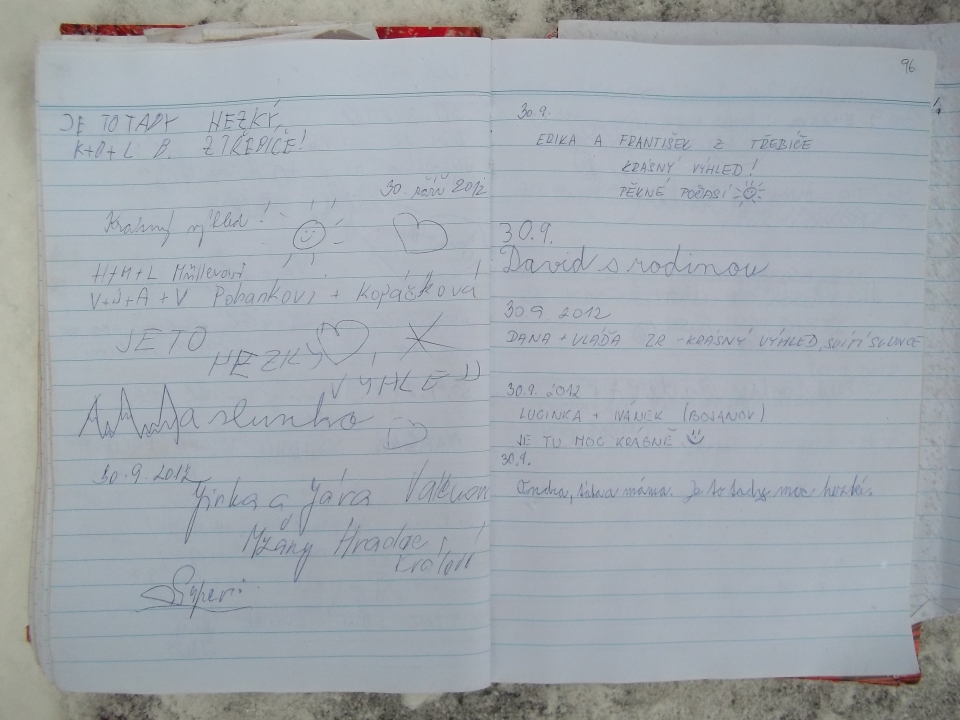 JE TO TADY HEZKÝ,
K+D+L B. Z TŘEBÍČE!
30. září 2012
Krásný výhled!
H+M+L Müllerovi
V+J+A+V Pohankovi + Kopáčková
JE TO
HEZKÝ
VÝHLED
A slunko
30.9.2012
Jirka a Jára
Mžany Hradec
Králové
Super
96
30.9.
ERIKA A FRANTIŠEK Z TŘEBÍČE
KRÁSNÝ VÝHLED!
PĚKNÉ POČASÍ
30.9.
David s rodinou
30.9 2012
DANA + VLÁĎA ZR - KRÁSNÝ VÝHLED, SVÍTÍ SLUNCE
30.9. 2012
LUCINKA + IVÁNEK (BOJANOV)
JE TU MOC KRÁSNĚ
30.9.
Ondra, táta a máma. Je to tady moc hezké.